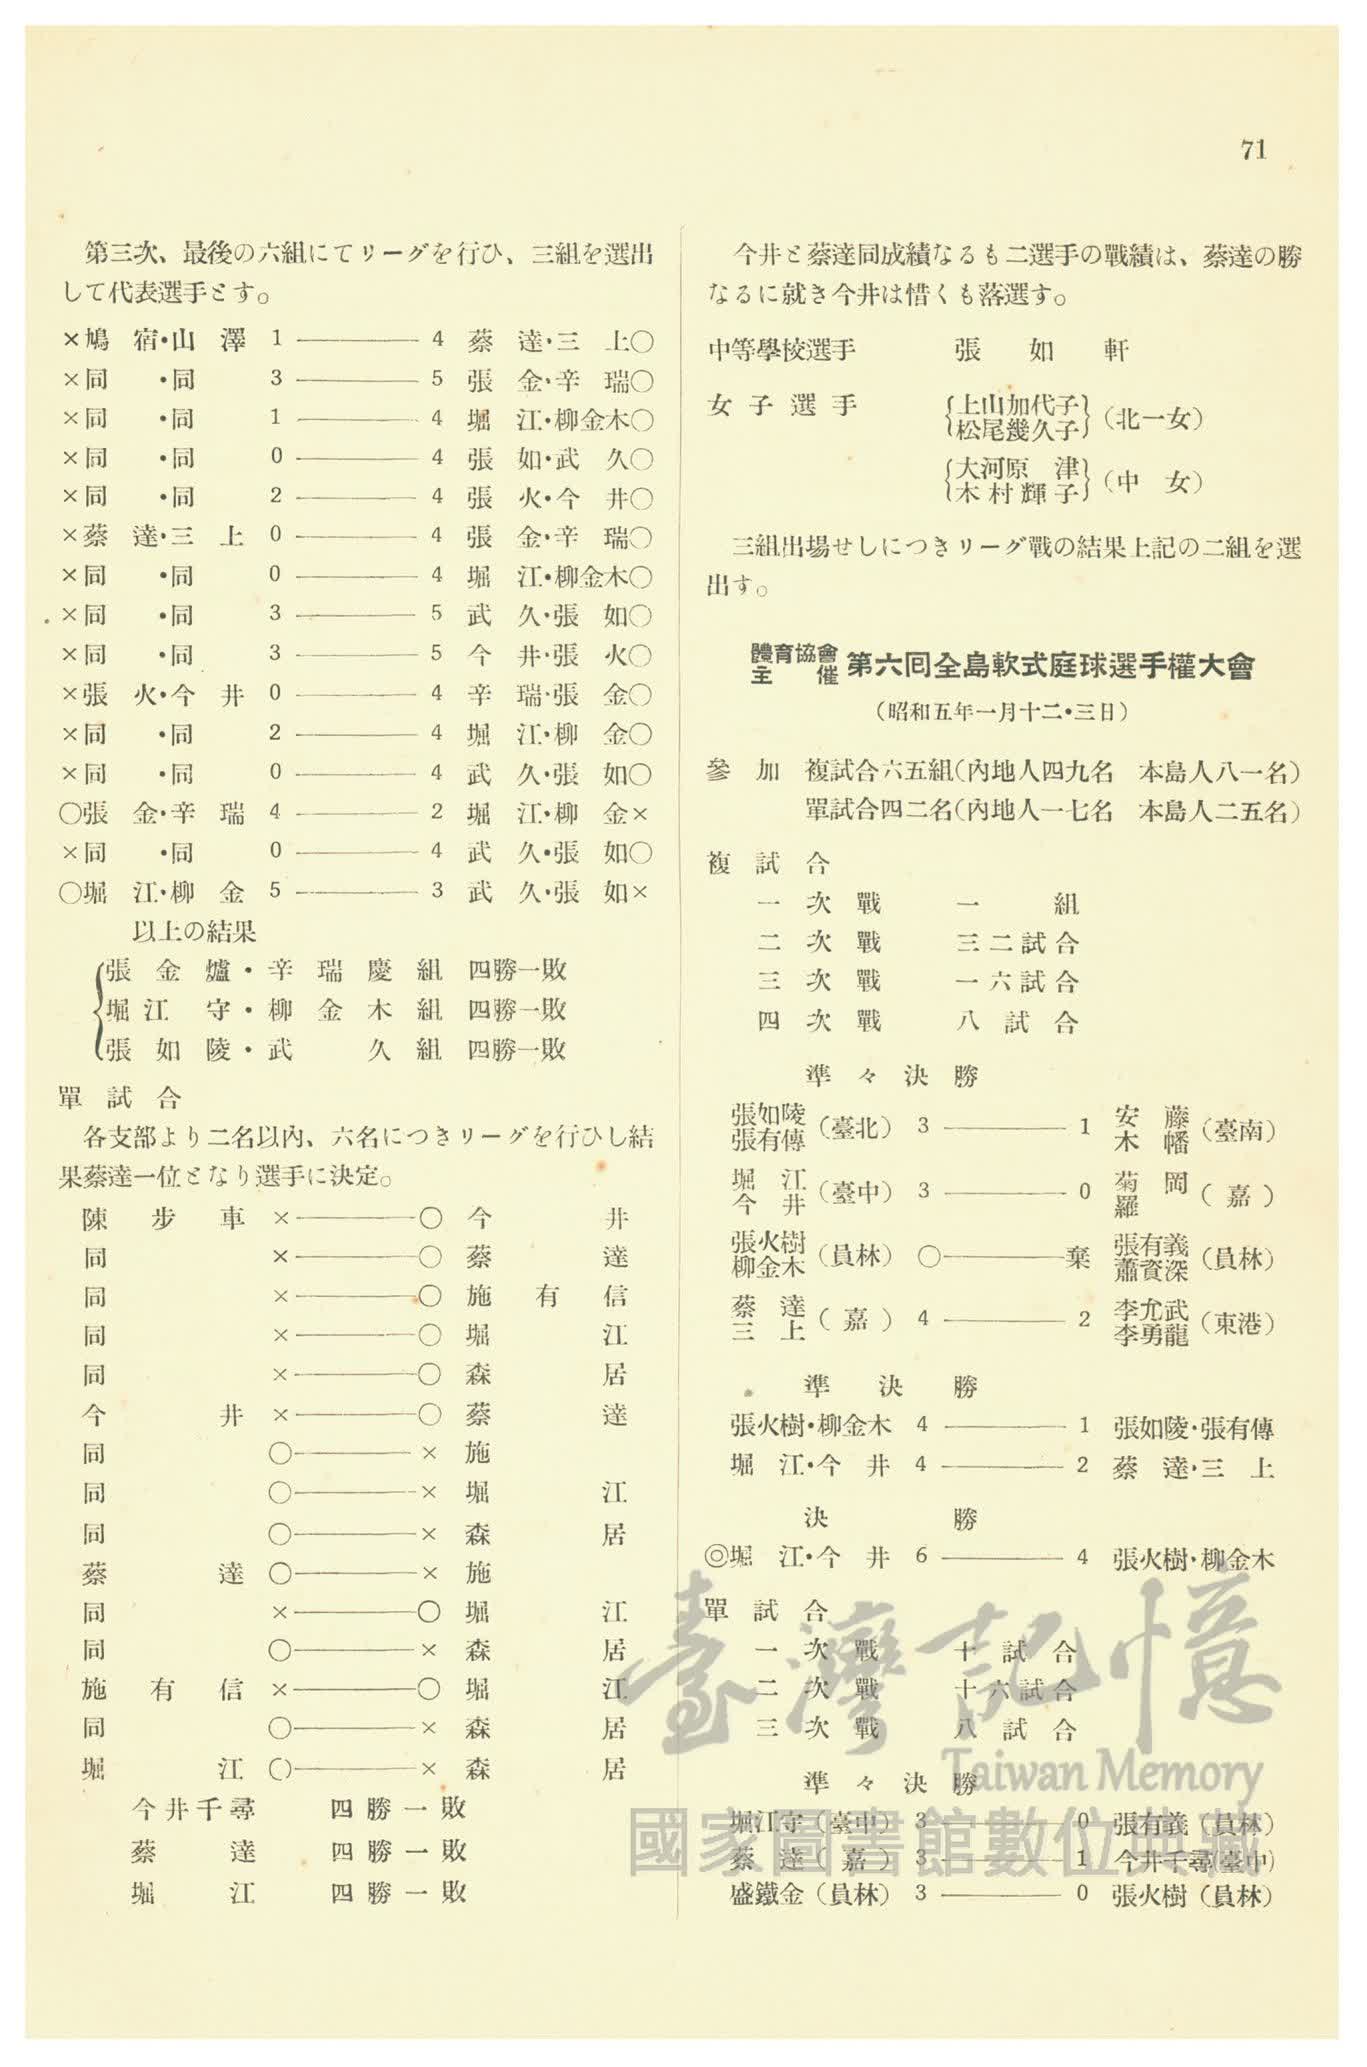 71
第三次、最後の六組にてリーグを行ひ、三組を選出
して代表選手とす。
×鳩宿・山澤 1 ——— 4 蔡達・三上○
×同・同 3 ——— 5 張金・辛瑞○
×同・同 1 ——— 4 堀江・柳金木○
×同・同 0 ——— 4 張如・武久○
×同・同 2 ——— 4 張火・今井○
×蔡達・三上 0 ——— 4 張金・辛瑞○
×同・同 0 ——— 4 堀江・柳金木○
×同・同 3 ——— 5 武久・張如○
×同・同 3 ——— 5 今井・張火○
×張火・今井 0 ——— 4 辛瑞・張金○
×同・同 2 ——— 4 堀江・柳金○
×同・同 0 ——— 4 武久・張如○
○張金・辛瑞 4 ——— 2 堀江・柳金×
×同・同 0 ——— 4 武久・張如○
○堀江・柳金 5 ——— 3 武久・張如×
以上の結果
張金爐・辛瑞慶組 四勝一敗
堀江守・柳金木組 四勝一敗
張如陵・武久組 四勝一敗
單試合
各支部より二名以內、六名につきリーグを行ひし結
果蔡達一位となり選手に決定。
陳步車 ×———○ 今井
同 ×———○ 蔡達
同 ×———○ 施有信
同 ×———○ 堀江
同 ×———○ 森居
今井 ×———○ 蔡達
同 ○———× 施
同 ○———× 堀江
同 ○———× 森居
蔡達 ○———× 施
同 ×———○ 堀江
同 ○———× 森居
施有信 ×———○ 堀江
同 ○———× 森居
堀江 ○———× 森居
今井千尋 四勝一敗
蔡達 四勝一敗
堀江 四勝一敗
今井と蔡達同成績なるも二選手の戰績は、蔡達の勝
なるに就き今井は惜くも落選す。
中等學校選手 張如軒
女子選手 上山加代子
松尾幾久子 (北一女)
大河原津
木村輝子 (中女)
三組出場せしにつきリーグ戰の結果上記の二組を選
出す。
體育協會
主催 第六囘全島軟式庭球選手權大會
(昭和五年一月十二・三日)
參加 複試合六五組(內地人四九名 本島人八一名)
單試合四二名(內地人一七名 本島人二五名)
複試合
一次戰 一組
二次戰 三二試合
三次戰 一六試合
四次戰 八試合
準々決勝
張如陵
張有傳 (臺北) 3 ——— 1 安藤
木幡 (臺南)
堀江
今井 (臺中) 3 ——— 0 菊岡
羅 (嘉)
張火樹
柳金木 (員林) ○———棄 張有義
蕭資深 (員林)
蔡達
三上 (嘉) 4 ——— 2 李允武
李勇龍 (東港)
準決勝
張火樹・柳金木 4 ——— 1 張如陵・張有傳
堀江・今井 4 ——— 2 蔡達・三上
決勝
◎堀江・今井 6 ——— 4 張火樹・柳金木
單試合
一次戰 十試合
二次戰 十六試合
三次戰 八試合
準々決勝
堀江守(臺中) 3 ——— 0 張有義(員林)
蔡達(嘉) 3 ——— 1 今井千尋(臺中)
盛鐵金(員林) 3 ——— 0 張火樹(員林)
臺灣記憶
Taiwan Memory
國家圖書館數位典藏